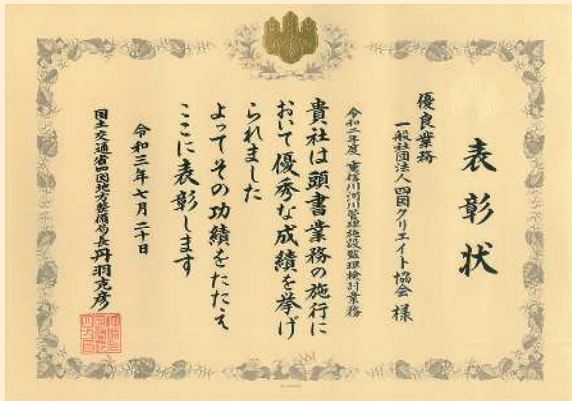 表彰状
優良業務
一般社団法人 四国クリエイト協会 様
令和二年度 重信川河川管理施設監理検討業務
貴社は頭書業務の施行に
おいて優秀な成績を挙げ
られました
よってその功績をたたえ
ここに表彰します
令和三年七月二十日
国土交通省四国地方整備局長 丹羽克彦